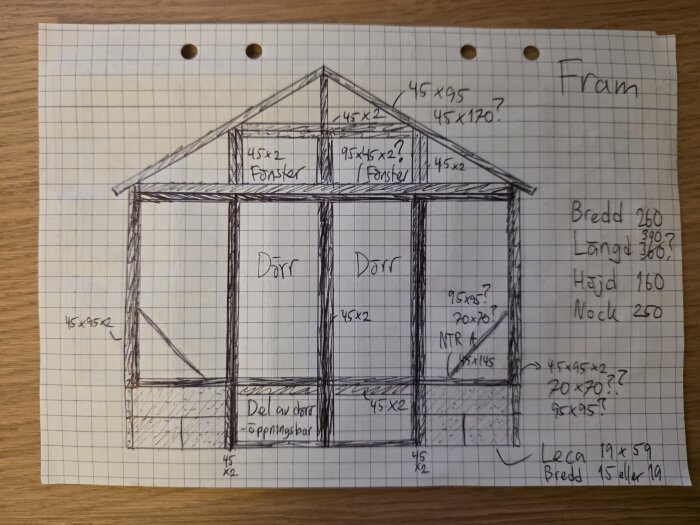 Fram
45×95
45×170?
45×2
45×2
Fönster
95×45×2?
Fönster
45×2
Bredd 260
Längd 390
360?
Höjd 160
Nock 250
Dörr
Dörr
45×95×2
45×2
95×95?
70×70?
NTR A
45×145
45×95×2
70×70??
95×95?
Del av dörr
-öppningsbar
45×2
45
×2
45
×2
Leca 19×59
Bredd 15 eller 19